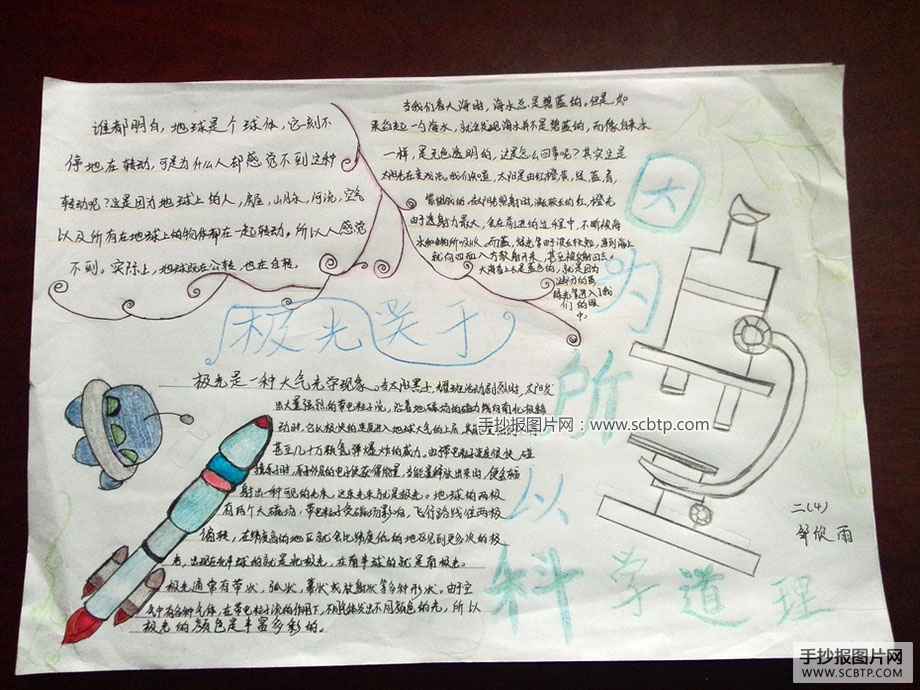 谁都明白,地球是个球体,它一刻不
停地在转动,可是为什么人却感觉不到这种
转动呢?这是因为地球上的人,房屋,山川,河流,空气
以及所有在地球上的物体都在一起转动。所以人感觉
不到。实际上,地球既在公转,也在自转。
当我们看大海时,海水总是碧蓝的。但是,如
果舀起一勺海水,就会发现海水并不是碧蓝的,而像自来水
一样,是无色透明的,这是怎么回事呢?其实这是
太阳光在变戏法。我们知道,太阳是由红橙黄,绿,蓝,
由于透射力最大,在前进的过程中,不断被海
大海看上去是蓝色的,就是因为
们的眼
中。
大为所以科学道理
极光关于
极光是一种大气光学现象。当太阳黑子,耀斑活动剧烈时,太阳发
出大量强烈的带电粒子流,沿着地磁场的磁力线向南北极移
动时,它以极快的速度进入地球大气的上层,其
甚至几十万颗氢弹爆炸的威力。由于带电粒子速度很快,碰
射出一种可见的光束,这束光束就是极光。地球的两极
有两个大磁场,带电粒子受磁场影响,飞行路线往两极
偏转,在纬度高的地区就会比纬度低的地区见到更多次的极
光,出现在北半球的就是北极光,在南半球的就是南极光。
极光通常有带状,弧状,幕状或放射状等多种形状。由于空
气中有各种气体,在带电粒子流的作用下,不同气体发出不同颜色的光,所以
极光的颜色是丰富多彩的。
二(4)
邹欣雨
手抄报图片网:www.scbtp.com
手抄报图片网
WWW.SCBTP.COM